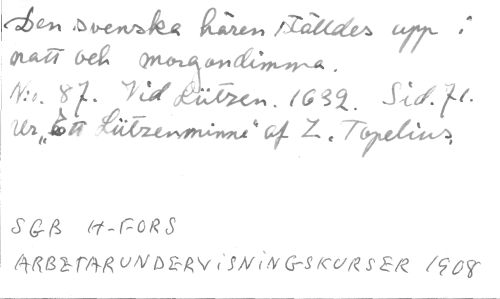 Den svenska hären ställdes upp i
natt och morgondimma.
N:o. 87. Vid Lützen. 1632. Sid. 71.
Ur „Ett Lützenminne" af Z. Topelius.
SGB H-FORS
ARBETARUNDERVISNINGSKURSER 1908